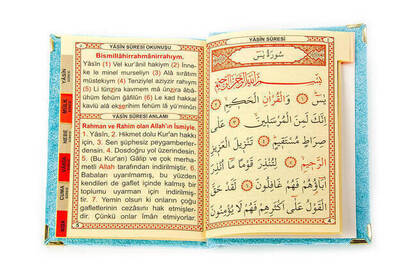 YÂSİN SÛRESİ OKUNUŞU
Bismillâhirrahmânirrahym.
Yâsîn (1) Vel kur'ânil hakiym (2) İnne-
ke le minel murseliyn (3) Alâ sırâtım
müstekiym (4) Tenziylel aziyzir rahıym
(5) Li tunzira kavmem mâ ünzira âbâ-
ühüm fehüm ğâfilûn (6) Le kad hakkal
kavlü alâ ekserihim fehüm lâ yü'minûn
YÂSİN SÛRESİ ANLAMI
Rahman ve Rahim olan Allah'ın İsmiyle.
1. Yâsîn, 2. Hikmet dolu Kur'an hakkı
için, 3. Sen şüphesiz peygamberler-
densin. 4. Dosdoğru yol üzerindesin.
5. (Bu Kur'an) Gâlip ve çok merha-
metli Allah tarafından indirilmiştir. 6.
Babaları uyarılmamış, bu yüzden
kendileri de gaflet içinde kalmış bir
toplumu uyarman için indirilmiş-
tir. 7. Yemin olsun ki onların çoğu
gafletlerinin cezasını hak etmişler-
dir. Çünkü onlar îman etmiyorlar.
YÂSİN
MÜLK
NEBE
CUMA
YÂSİN SÛRESİ
سُورَةُ يٰسٓ
بِسْمِ اللّٰهِ الرَّحْمٰنِ الرَّحِيمِ
يٰسٓ ﴿١﴾ وَالْقُرْاٰنِ الْحَكِيمِ ﴿٢﴾
اِنَّكَ لَمِنَ الْمُرْسَلِينَ ﴿٣﴾ عَلٰى
صِرَاطٍ مُسْتَقِيمٍ ﴿٤﴾ تَنْزِيلَ الْعَزِيزِ
الرَّحِيمِ ﴿٥﴾ لِتُنْذِرَ قَوْمًا مَٓا اُنْذِرَ
اٰبَٓاؤُهُمْ فَهُمْ غَافِلُونَ ﴿٦﴾ لَقَدْ حَقَّ
الْقَوْلُ عَلٰٓى اَكْثَرِهِمْ فَهُمْ لَا يُؤْمِنُونَ